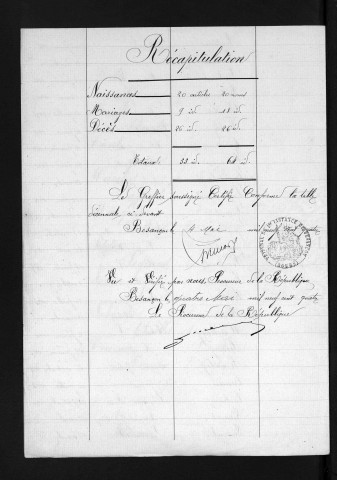 Récapitulation
Naissances 20 articles 20 noms
Mariages 9 id. 18 id.
Décès 26 id. 26 id.
Totaux id. 64 id.
Le Greffier soussigné Certifie Conforme la table
décennale ci-devant
Besançon le 4 Mai mil neuf cent quatre
Vu et Vérifié par nous, Procureur de la République
Besançon le quatre Mai mil neuf cent quatre
Le Procureur de la République